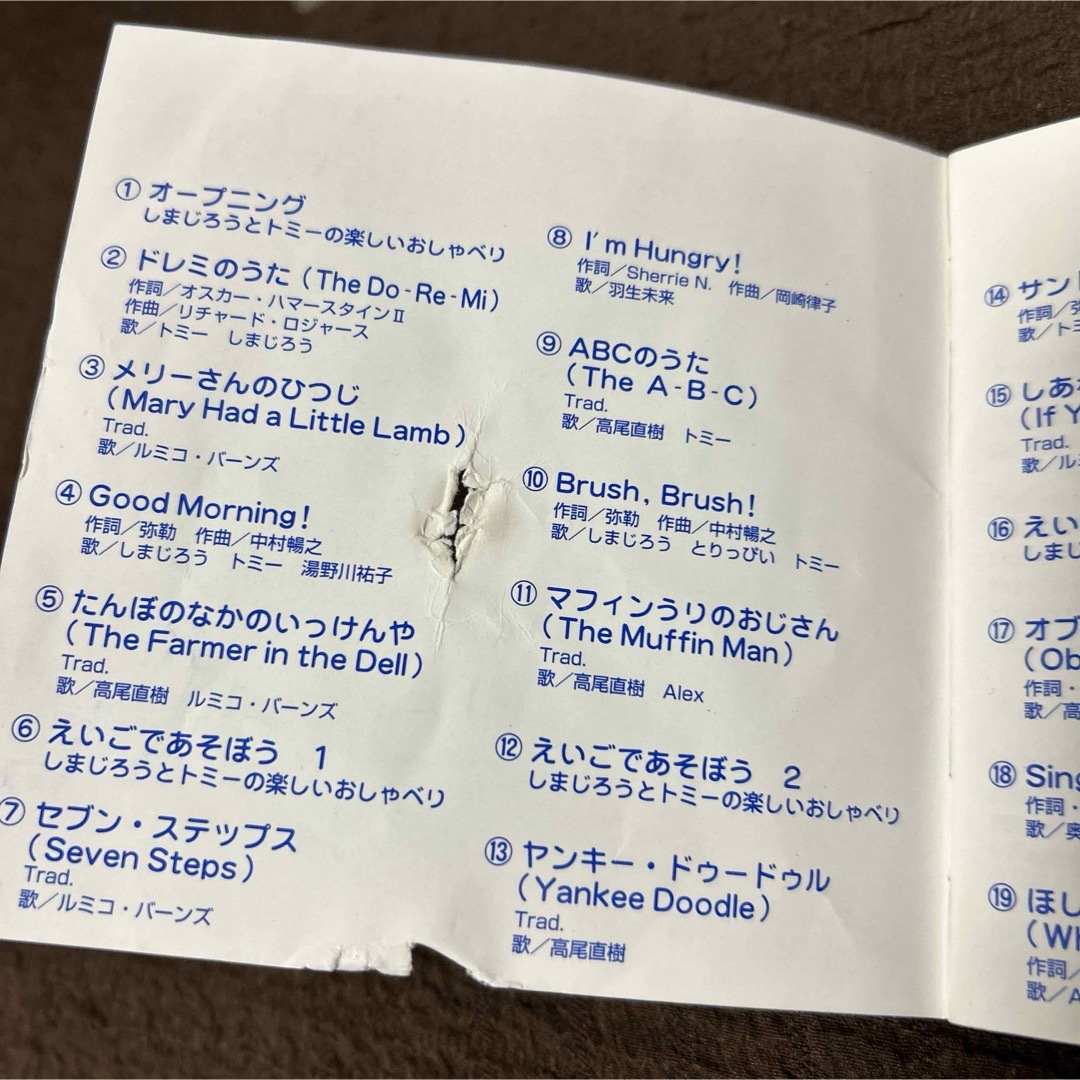 ① オープニング
しまじろうとトミーの楽しいおしゃべり
② ドレミのうた (The Do-Re-Mi)
作詞／オスカー・ハマースタインⅡ
作曲／リチャード・ロジャース
歌／トミー　しまじろう
③ メリーさんのひつじ
(Mary Had a Little Lamb)
Trad.
歌／ルミコ・バーンズ
④ Good Morning!
作詞／弥勒　作曲／中村暢之
歌／しまじろう　トミー　湯野川祐子
⑤ たんぼのなかのいっけんや
(The Farmer in the Dell)
Trad.
歌／高尾直樹　ルミコ・バーンズ
⑥ えいごであそぼう　1
しまじろうとトミーの楽しいおしゃべり
⑦ セブン・ステップス
(Seven Steps)
Trad.
歌／ルミコ・バーンズ
⑧ I'm Hungry!
作詞／Sherrie N.　作曲／岡崎律子
歌／羽生未来
⑨ ABCのうた
(The A-B-C)
Trad.
歌／高尾直樹　トミー
⑩ Brush, Brush!
作詞／弥勒　作曲／中村暢之
歌／しまじろう　とりっぴい　トミー
⑪ マフィンうりのおじさん
(The Muffin Man)
Trad.
歌／高尾直樹　Alex
⑫ えいごであそぼう　2
しまじろうとトミーの楽しいおしゃべり
⑬ ヤンキー・ドゥードゥル
(Yankee Doodle)
Trad.
歌／高尾直樹
⑭ サン
作詞／
歌／ト
⑮ しあ
(If Y
Trad.
歌／ル
⑯ えい
しまじ
⑰ オブ
(Ob
作詞・
歌／高
⑱ Sing
作詞・
歌／奥
⑲ ほし
(W
作詞／
歌／A